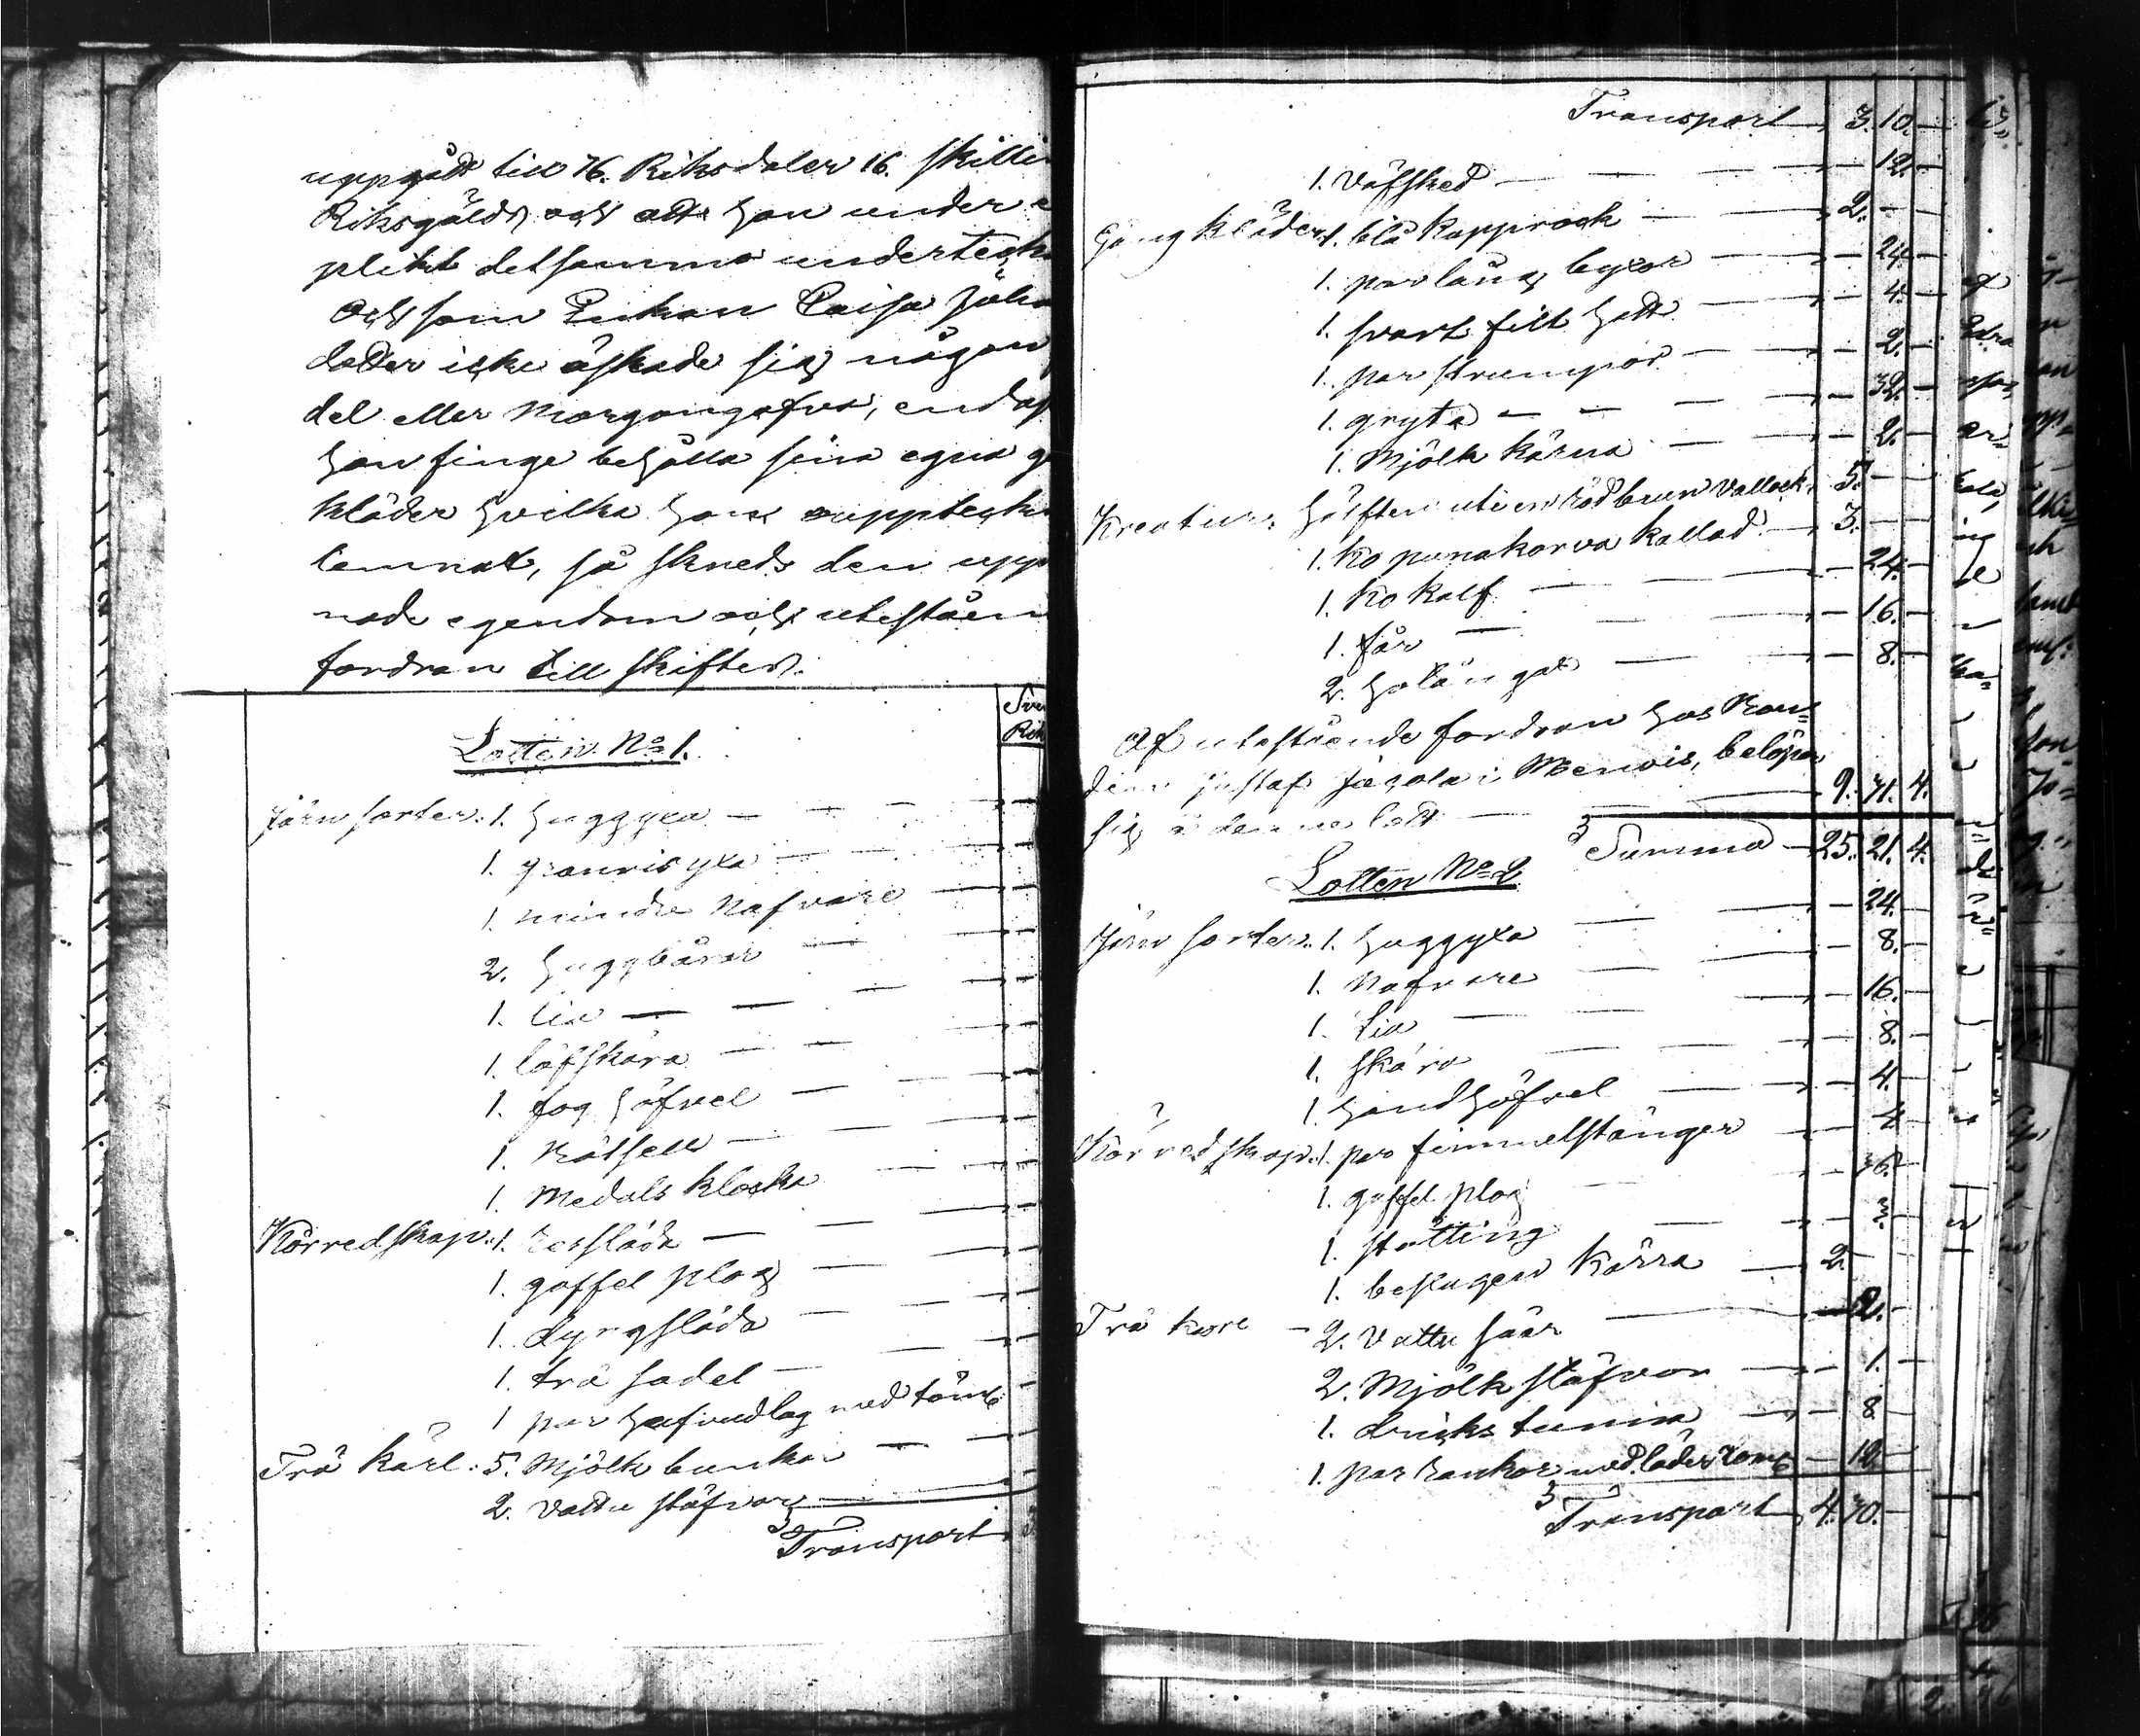 uppgått till 76. Riksdaler 16. skilli
Riksgälds och att hon under e
plikt detsamma underteck
Och som Enkan Caisa Joha
dotter icke äskade sig någon
del eller Morgongofva, endast
hon finge behålla sina egna g
kläder hvilka hon upptecknat
lemnat, så skreds den upp
nade egendom och utestäen
fordran till skiftes.
Lotten No 1.
Järn sorter. 1. huggyxa
1. granris yxa
1. mindre Nafvare
2. huggbårar
1. lia
1. löfskära
1. fog höfvel
1.
1. Medals klocka
Körredskap. 1. resslåda
1. gaffel plog
1. dyngslåda
1. trä sadel
1 par hufvudlag med töm
Trä kärl: 5. Mjölk bunkar
2. Vattu stäfvor
Transport 3.
Transport 3. 10.
1. Väfsked 12.
Gång kläder 1. blå Kapprock 2.
1. par långbyxor 24.
1. svart filt hatt 4.
1. par strumpor 2.
1. gryta 32.
1. Mjölk kärna 2.
Kreatur. hälften uti en rödbrun Vallack 5.
1. Ko punakorva kallad 3.
1. Ko kalf 24.
1. får 16.
2. 8.
Af utestående fordran hos Bon-
den Gustaf i Mervis, belöper
sig å denna lott 9. 41. 4.
Summa 25. 21. 4.
Lotten No 2
Järn sorter. 1. huggyxa 24.
1. Nafvare 8.
1. Lia 16.
1. skära 8.
1. handhöfvel 4.
Körredskap. 1. par fimmelstänger 4
1. gaffel plog 36.
1. stötting 3.
1. beslagen Kärra 2.
Trä käre 2. Vattu såar 2.
2. Mjölk stäfvor 1.
1. dricks tunna 8
1. par rankor med läder 12
Transport 4. 10.